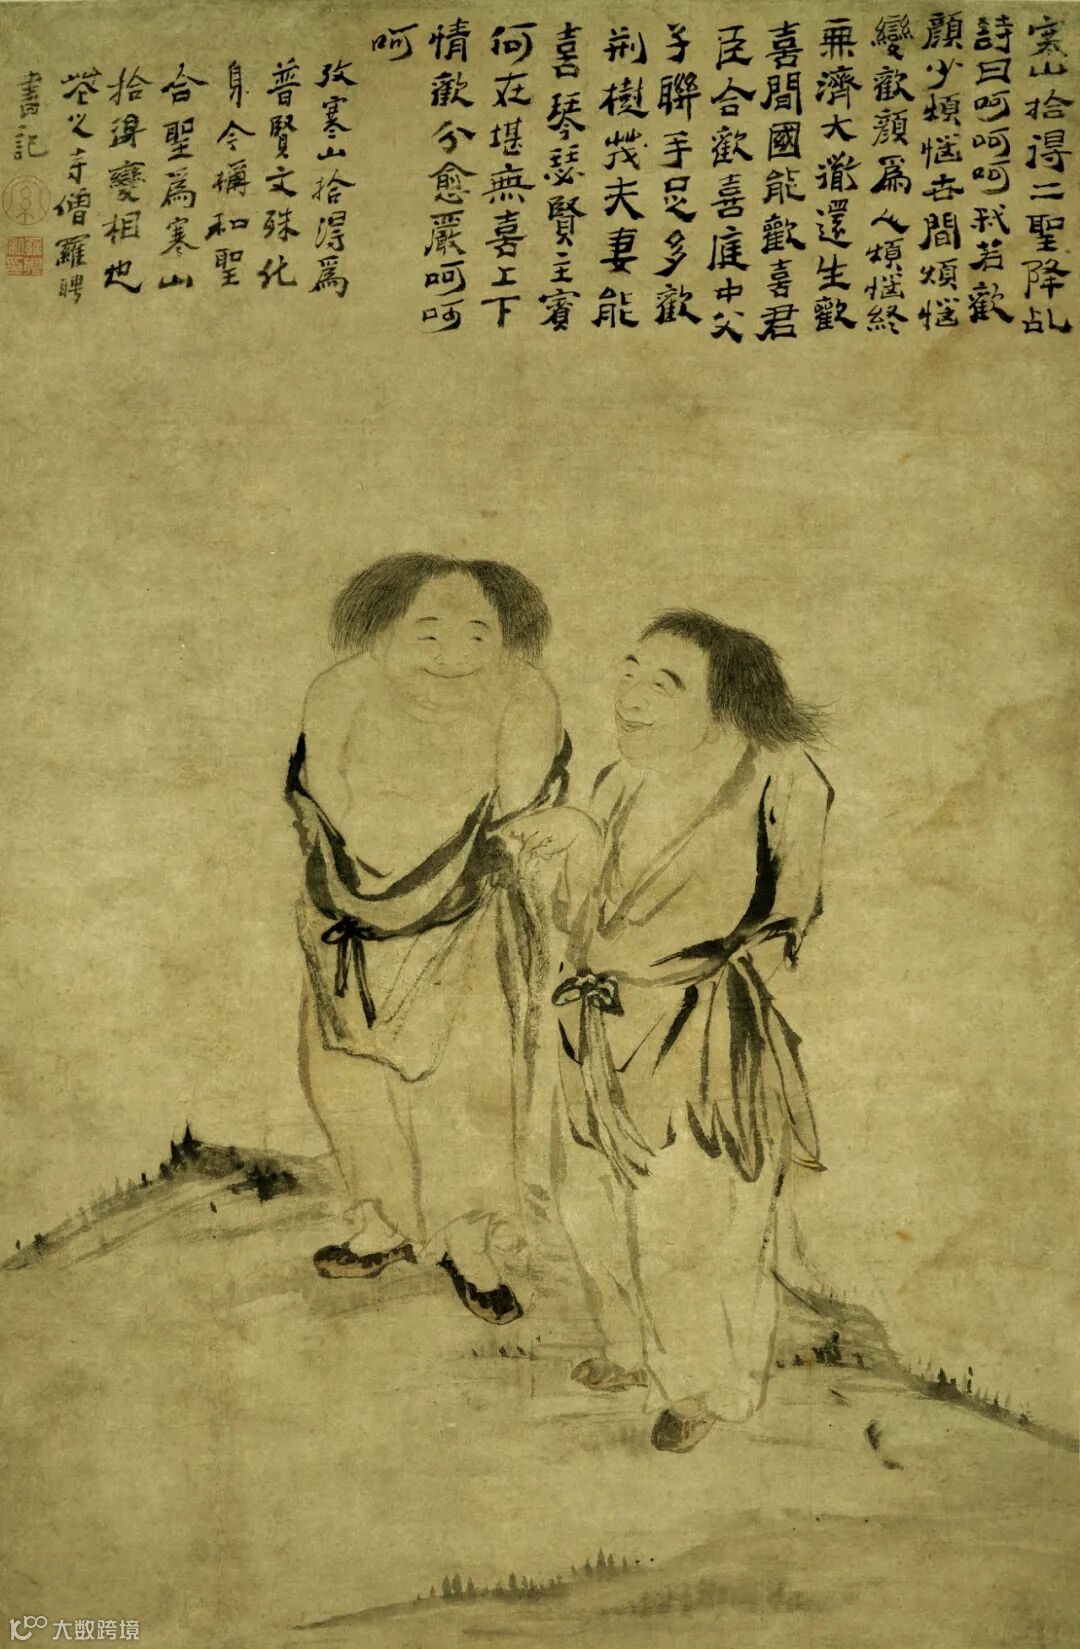 寒山拾得二聖降乩
詩曰呵呵呵我若歡
顏少煩惱世間煩惱
變歡顏爲人煩惱終
無濟大道還生歡
喜間國能歡喜君
臣合歡喜庭中父
子聯手足多歡
荆樹茂夫妻能
喜琴瑟賢主賓
何在堪無喜上下
情歡分愈嚴呵呵
呵
攷寒山拾得爲
普賢文殊化
身今稱和聖
合聖爲寒山
拾得變相也
花之寺僧羅聘
書記
大数跨境